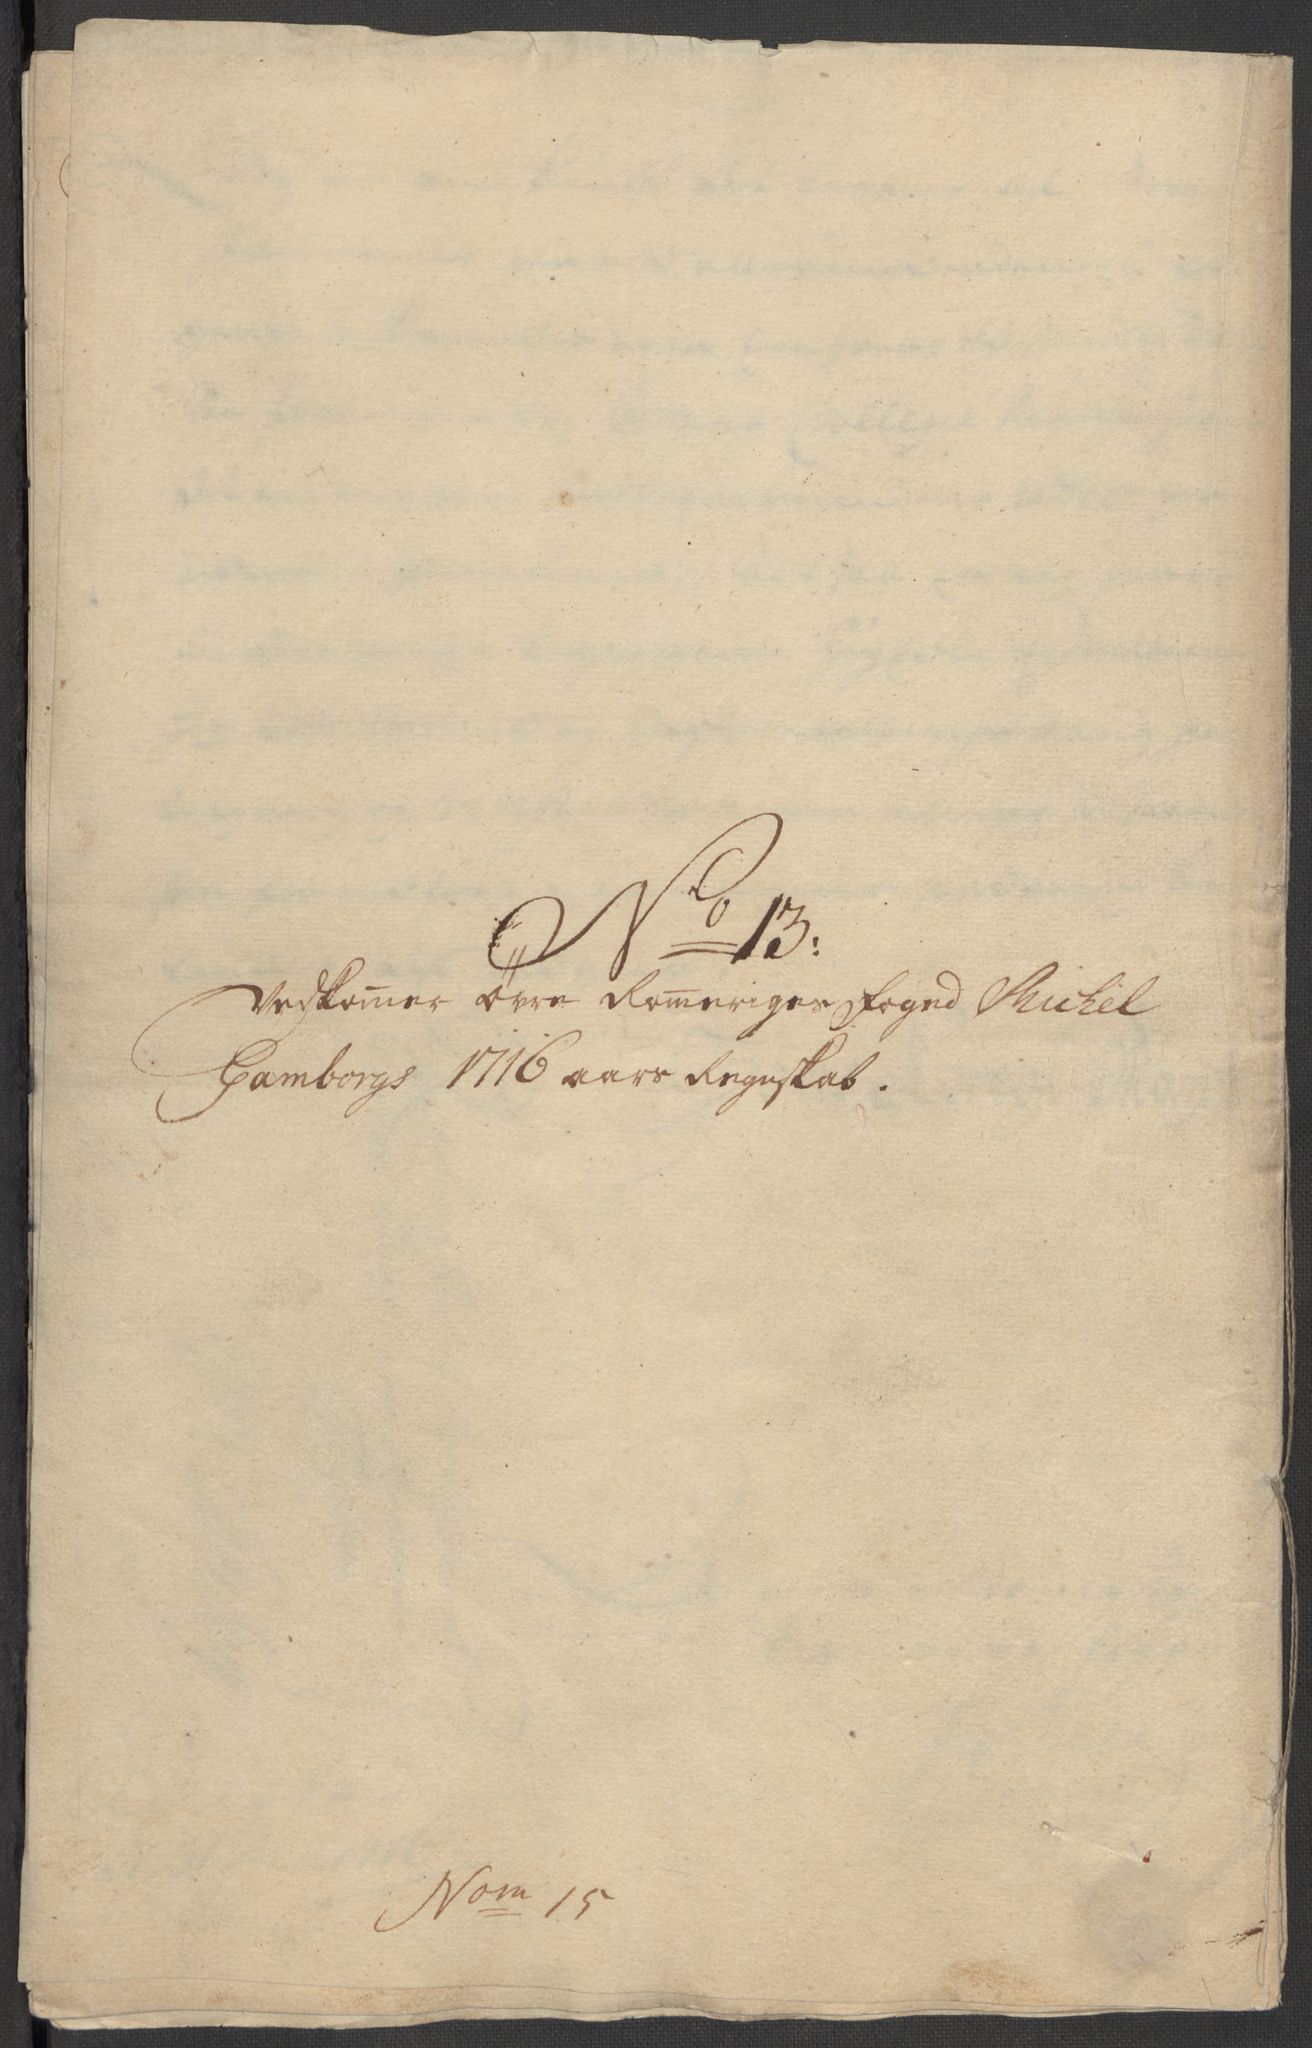 No 13:
Vedkom̄er övre Rom̄eriges foged Michel
Gamborgs 1716 aars Regnskab.
Nom 15